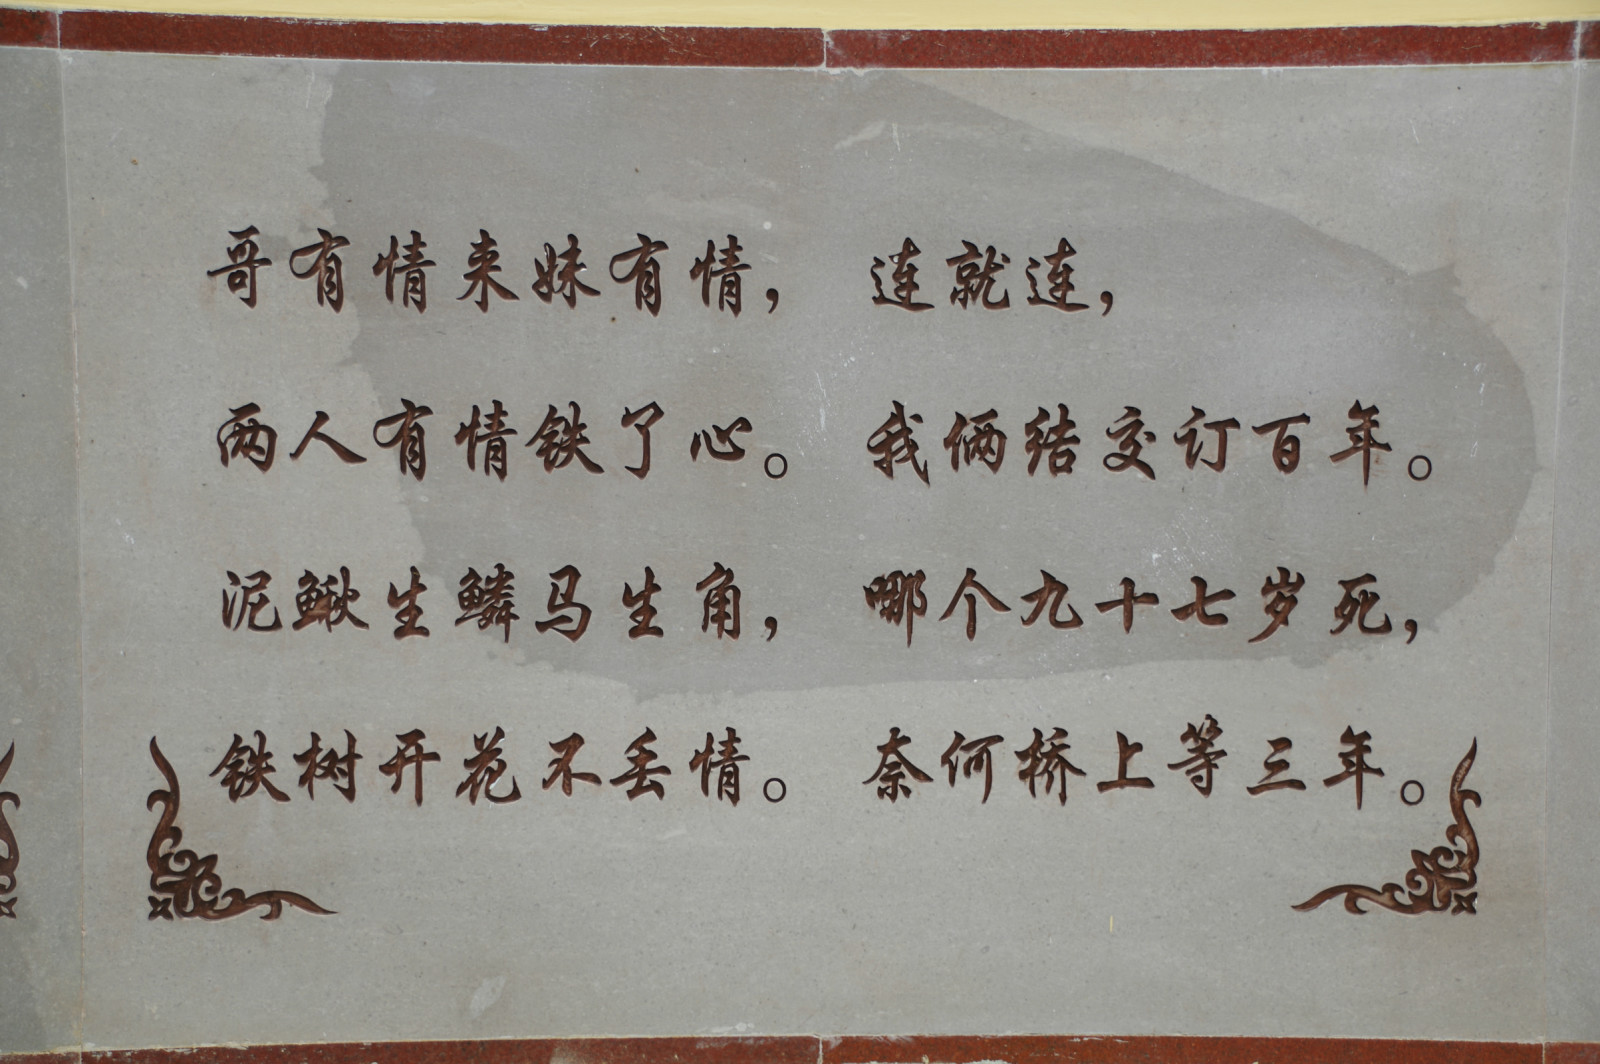 哥有情来妹有情，
两人有情铁了心。
泥鳅生鳞马生角，
铁树开花不丢情。
连就连，
我俩结交订百年。
哪个九十七岁死，
奈何桥上等三年。